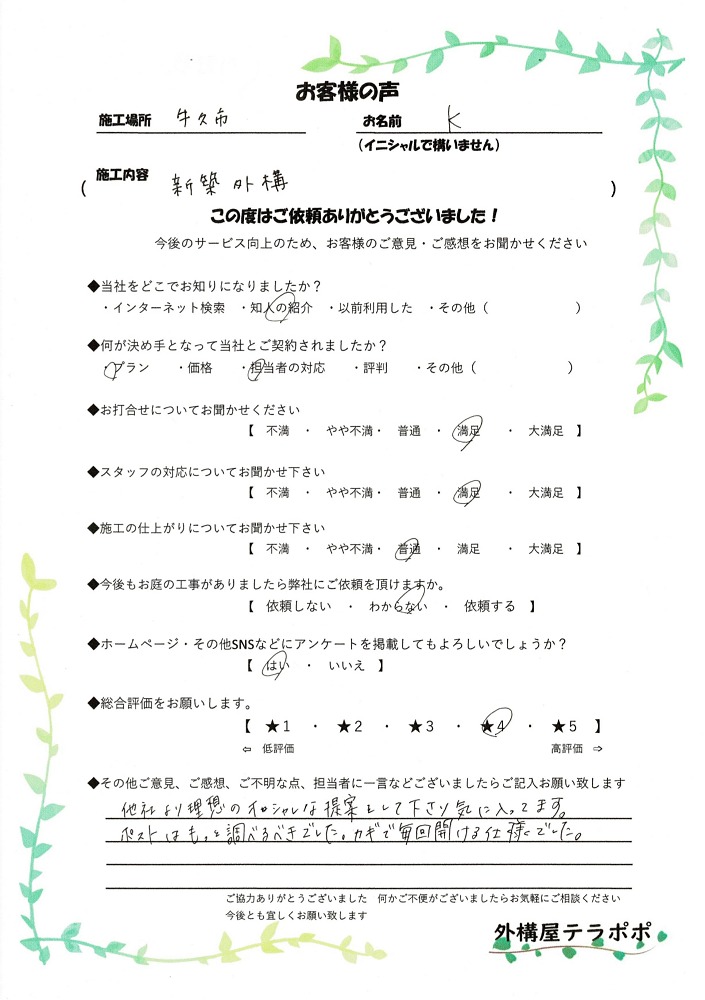 お客様の声
施工場所 牛久市 お名前 K
(イニシャルで構いません)
( 施工内容 新築外構 )
この度はご依頼ありがとうございました！
今後のサービス向上のため、お客様のご意見・ご感想をお聞かせください
◆当社をどこでお知りになりましたか？
・インターネット検索 ・知人の紹介 ・以前利用した ・その他（ ）
◆何が決め手となって当社とご契約されましたか？
・プラン ・価格 ・担当者の対応 ・評判 ・その他（ ）
◆お打合せについてお聞かせください
【 不満 ・ やや不満・ 普通 ・ 満足 ・ 大満足 】
◆スタッフの対応についてお聞かせ下さい
【 不満 ・ やや不満・ 普通 ・ 満足 ・ 大満足 】
◆施工の仕上がりについてお聞かせ下さい
【 不満 ・ やや不満・ 普通 ・ 満足 ・ 大満足 】
◆今後もお庭の工事がありましたら弊社にご依頼を頂けますか。
【 依頼しない ・ わからない ・ 依頼する 】
◆ホームページ・その他SNSなどにアンケートを掲載してもよろしいでしょうか？
【 はい ・ いいえ 】
◆総合評価をお願いします。
【 ★1 ・ ★2 ・ ★3 ・ ★4 ・ ★5 】
⇦ 低評価 高評価 ⇨
◆その他ご意見、ご感想、ご不明な点、担当者に一言などございましたらご記入お願い致します
他社より理想のオシャレな提案をして下さり気に入ってます。
ポストはもっと調べるべきでした。カギで毎回開ける仕様でした。
ご協力ありがとうございました 何かご不便がございましたらお気軽にご相談ください
今後とも宜しくお願い致します
外構屋テラポポ